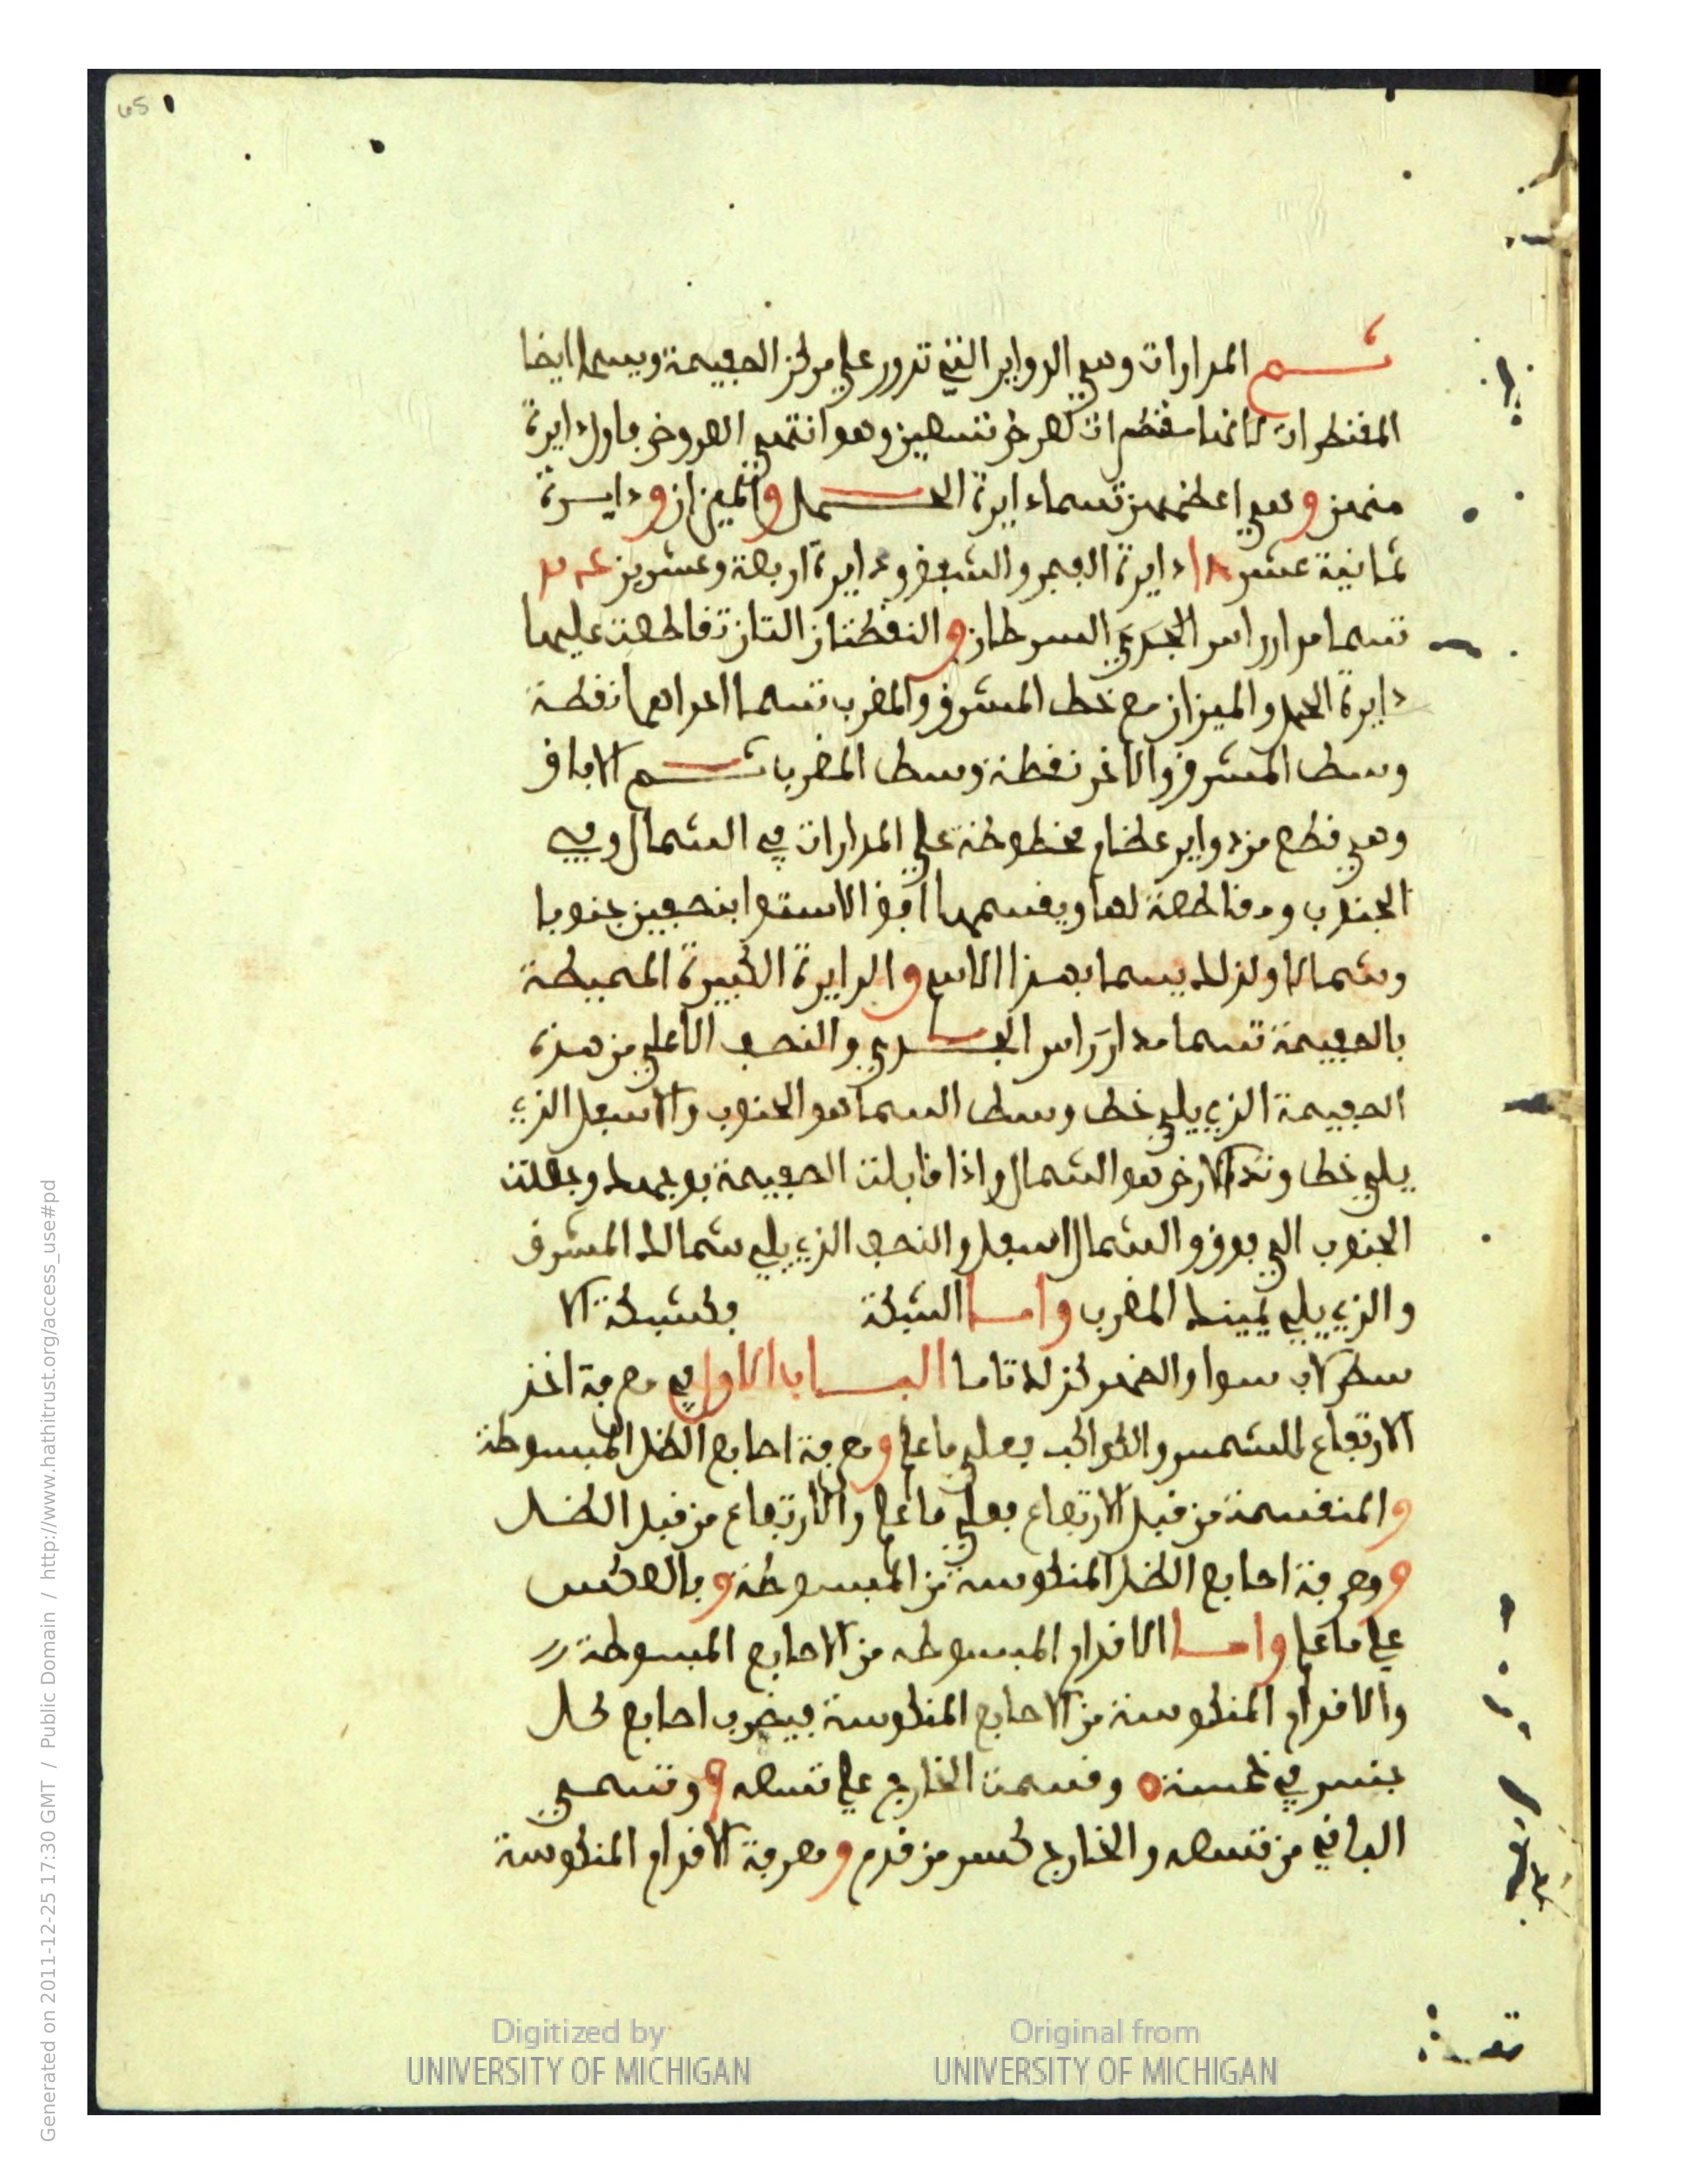 65
ثم المدارات وهي الدواير التي تدور على مركز الصفيحة ويسما ايضا
المقنطرات لانها مقنطرات لعرض تسعين وهو انتهى العروض فاول دايرة
منهن وهي اعظمهن تسما دايرة الحمل والميزان ودايرة
ثمانية عشر دايرة الفجر والشفق ودايرة اربعة وعشرين
تسما مدار راس الجدي السرطان والنقطتان التان تقاطعت عليهما
دايرة الحمل والميزان مع خط المشرق والمغرب تسما احداهما نقطة
وسط المشرق والاخر نقطة وسط المغرب ثم الافاق
وهي قطع من دواير عظام مخطوطة على المدارات في الشمال وفي
الجنوب ومقاطعة لها ويقسمها افق الاستوا بنصفين جنوبا
وشمالا ولذلك يسما بهذا الاسم والدايرة الكبيرة المحيطة
بالصفيحة تسما مدار راس الجدي والنصف الاعلى من هذه
الصفيحة الذي يلي خط وسط السما هو الجنوب والاسفل الذي
يلي خط وتد الارض هو الشمال واذا قابلت الصفيحة بوجهك وجعلت
الجنوب الى فوق والشمال اسفل والنصف الذي يلي شمالك المشرق
والذي يلي يمينك المغرب واما الشبكة فكشبكة الا
سطرلاب سوا والضهر كذلك تاما الباب الاول في معرفة اخذ
الارتفاع للشمس والكواكب فعلى ما علم ومعرفة اصابع الظل المبسوطة
والمنقسمة من قبل الارتفاع فعلى ما علم والارتفاع من قبل الظل
ومعرفة اصابع الظل المنكوسة من المبسوطة وبالعكس
على ما علم واما الاقدام المبسوطه من الاصابع المبسوطة
والاقدام المنكوسة من الاصابع المنكوسة فيضرب اصابع كل
جنس في خمسة وقسمت الخارج على تسعه وتسمي
الباقي من تسعه والخارج كسر من قدم ومعرفة الاقدام المنكوسة
Digitized by
UNIVERSITY OF MICHIGAN
Original from
UNIVERSITY OF MICHIGAN
Generated on 2011-12-25 17:30 GMT / Public Domain / http://www.hathitrust.org/access_use#pd